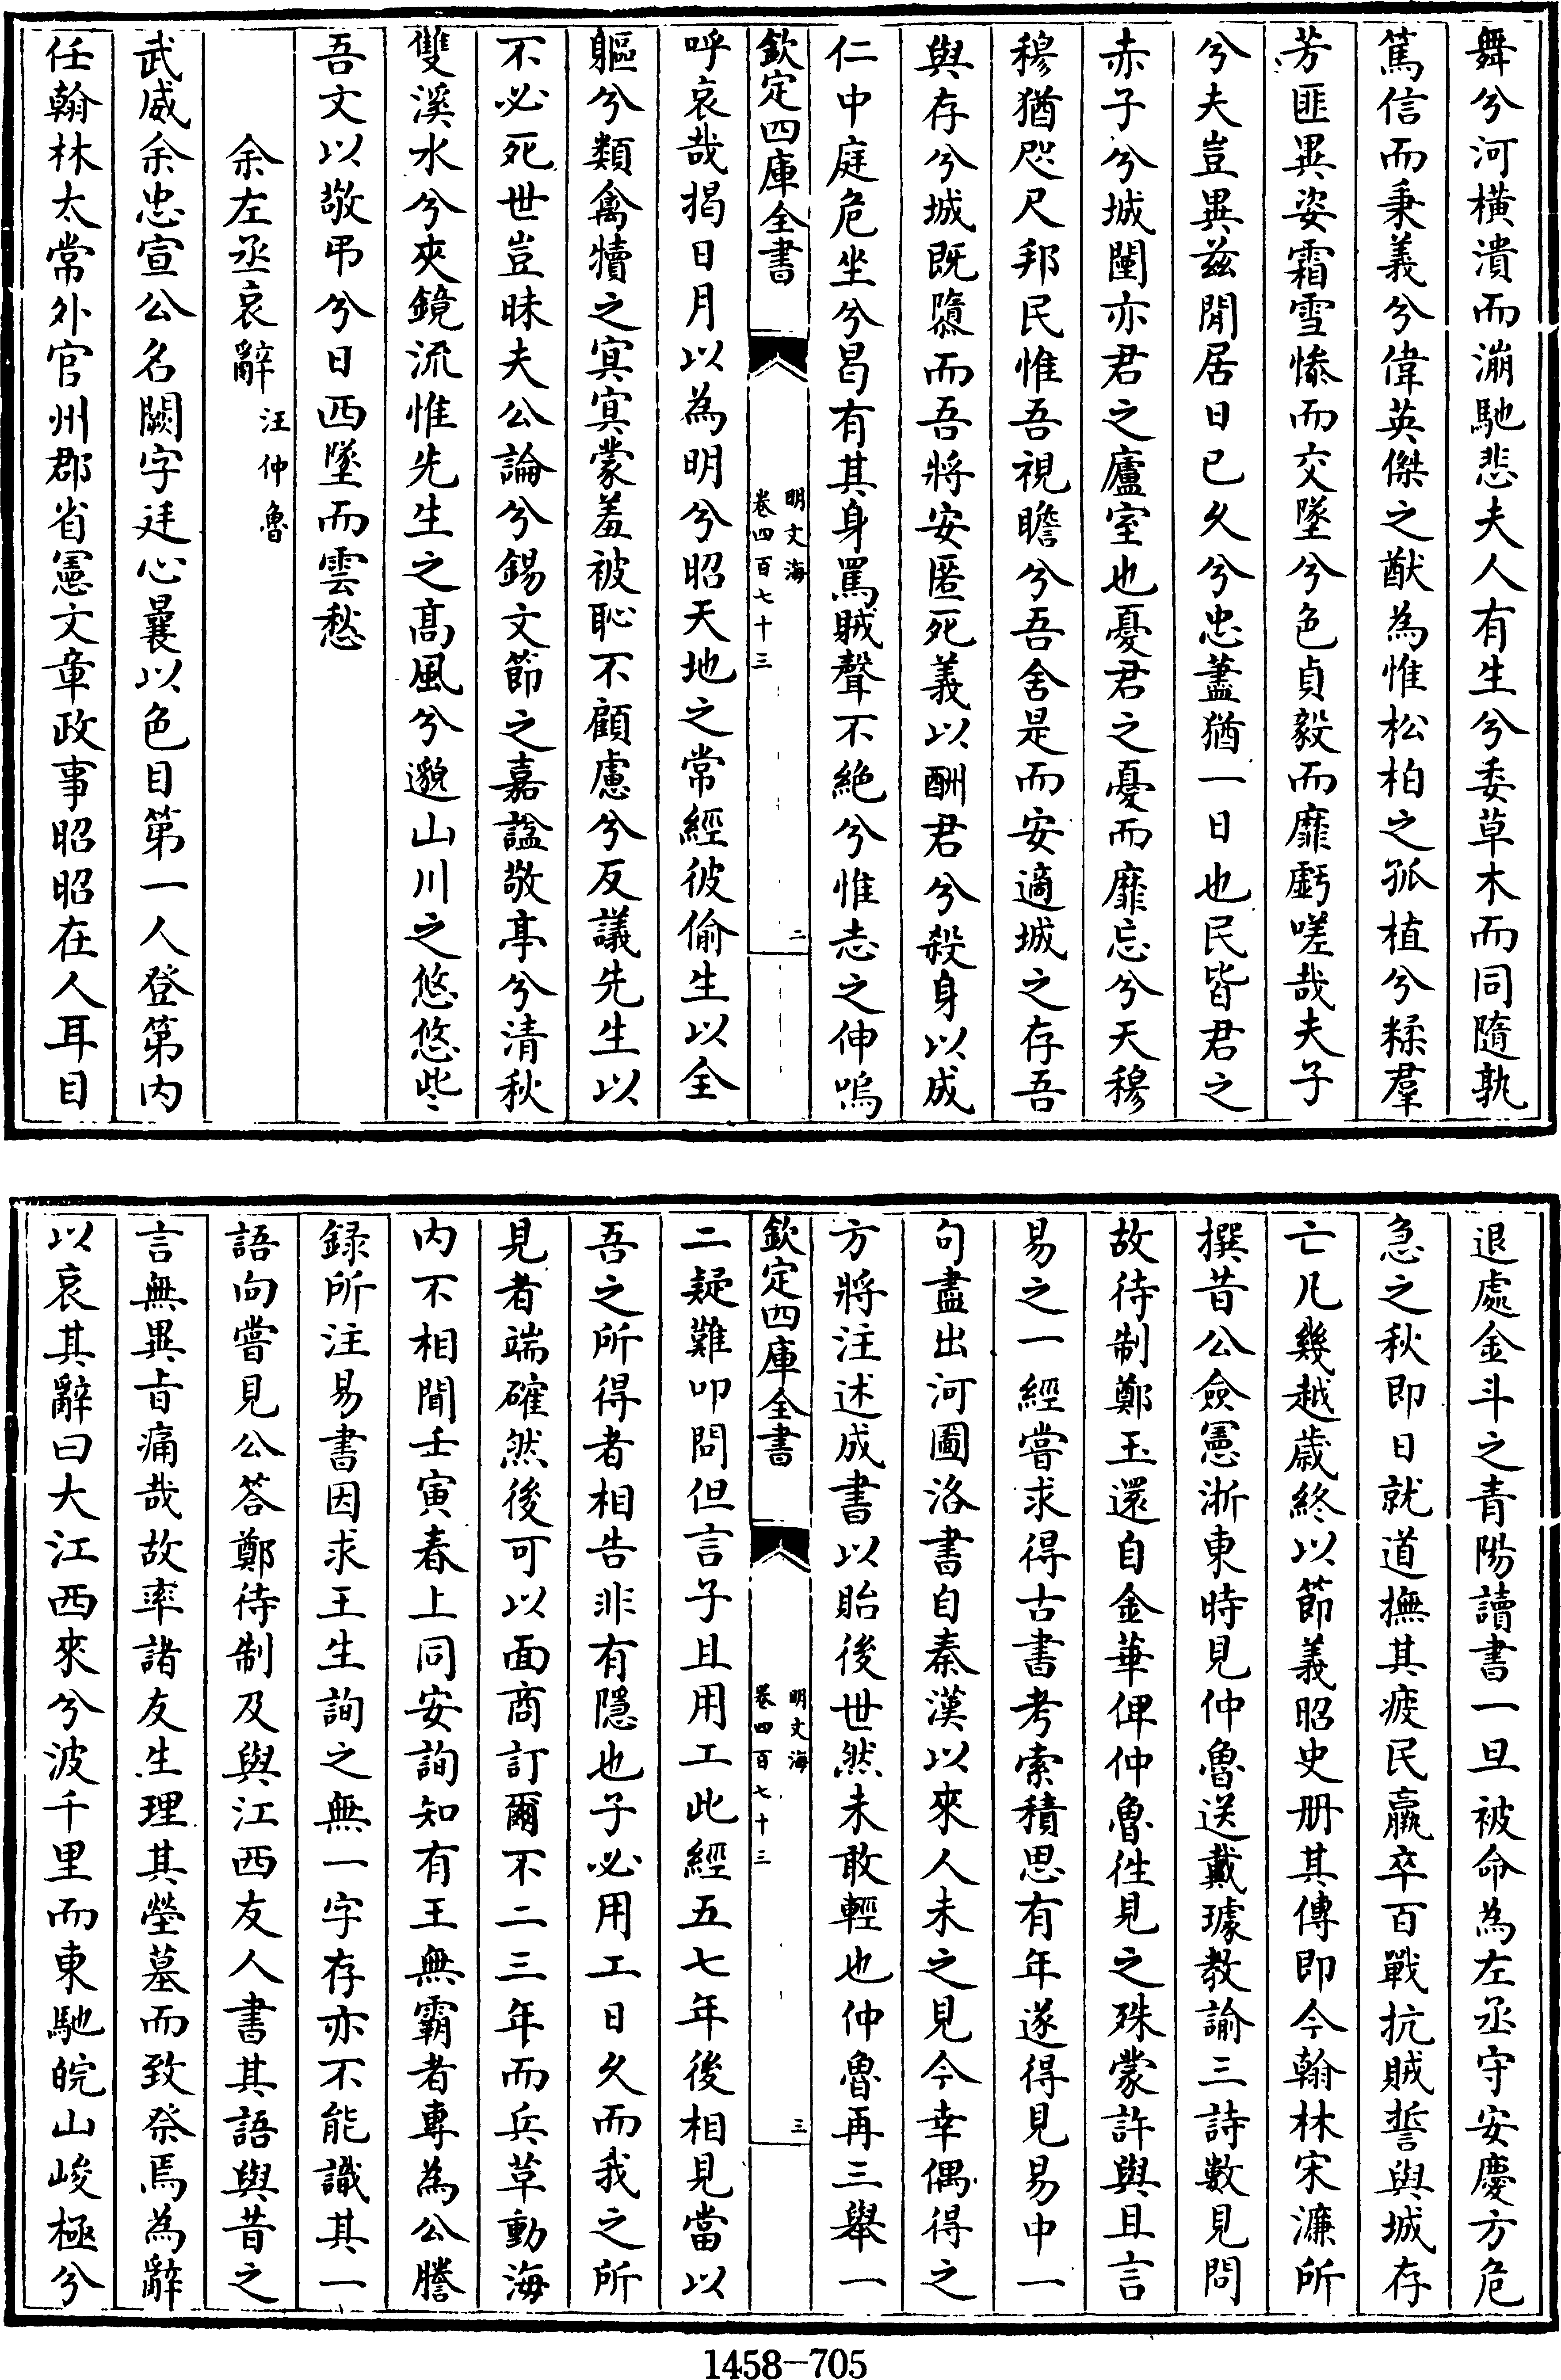 舞兮河橫潰而漰馳悲夫人有生兮委草木而同隨孰
篤信而秉義兮偉英傑之猷為惟松柏之孤植兮糅羣
芳匪異姿霜雪慘而交墜兮色貞毅而靡虧嗟哉夫子
兮夫豈異茲閒居日已久兮忠藎猶一日也民皆君之
赤子兮城闉亦君之廬室也憂君之憂而靡忘兮天穆
穆猶咫尺邦民惟吾視瞻兮吾舍是而安適城之存吾
與存兮城既隳而吾將安匿死義以酬君兮殺身以成
仁中庭危坐兮曷有其身罵賊聲不絕兮惟志之伸嗚
欽定四庫全書
明文海
卷四百七十三
二
呼哀哉揭日月以為明兮昭天地之常經彼偷生以全
軀兮類禽犢之㝠㝠蒙羞被恥不顧慮兮反議先生以
不必死世豈昧夫公論兮錫文節之嘉諡敬亭兮清秋
雙溪水兮夾鏡流惟先生之髙風兮邈山川之悠悠些
吾文以敬弔兮日西墜而雲愁
余左丞哀辭 汪仲魯
武威余忠宣公名闕字廷心曩以色目第一人登第内
任翰林太常外官州郡省憲文章政事昭昭在人耳目
退處金斗之青陽讀書一旦被命為左丞守安慶方危
急之秋即日就道撫其疲民羸卒百戰抗賊誓與城存
亡凡幾越歲終以節義昭史册其傳即今翰林宋濂所
撰昔公僉憲浙東時見仲魯送戴璩教諭三詩數見問
故待制鄭玉還自金華俾仲魯徃見之殊蒙許與且言
易之一經嘗求得古書考索積思有年遂得見易中一
句盡出河圖洛書自秦漢以來人未之見今幸偶得之
方將注述成書以貽後世然未敢輕也仲魯再三舉一
欽定四庫全書
明文海
卷四百七十三
三
二疑難叩問但言子且用工此經五七年後相見當以
吾之所得者相告非有隱也子必用工日久而我之所
見者端確然後可以面商訂爾不二三年而兵草動海
内不相聞壬寅春上同安詢知有王無霸者專為公謄
録所注易書因求王生詢之無一字存亦不能識其一
語向嘗見公答鄭待制及與江西友人書其語與昔之
言無異㫖痛哉故率諸友生理其塋墓而致祭焉為辭
以哀其辭曰大江西來兮波千里而東馳皖山峻極兮
1458-705